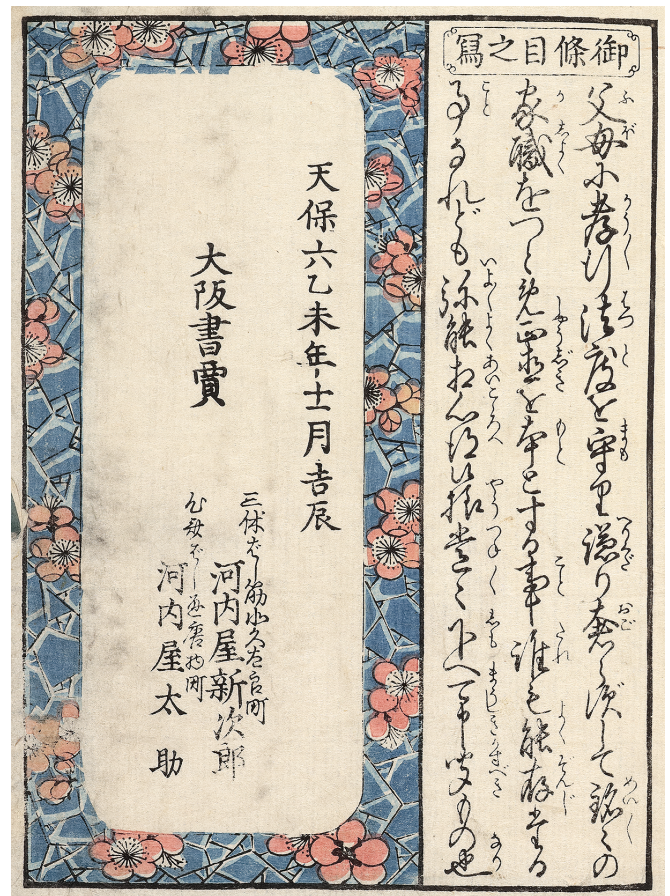 御條目之寫
父母に孝行法度を守り謙り奢らずして銘々の
家職をつとめ正直を本とする事誰も能存たる
事なれども弥能相心得候様常々下へ可申聞もの也
天保六乙未年十二月吉辰
大阪書賈
三休ばし筋北久太郎町
河内屋新次郎
心斎ばし通唐物町
河内屋太助